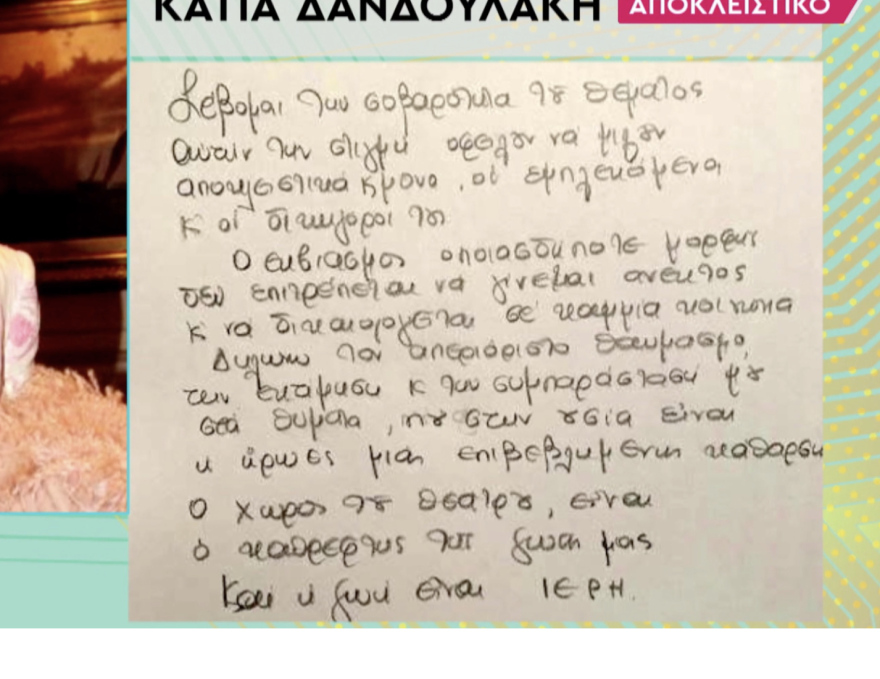 ΚΑΤΙΑ ΔΑΝΔΟΥΛΑΚΗ ΑΠΟΚΛΕΙΣΤΙΚΟ
Σέβομαι την σοβαρότητα του θέματος
αυτήν την στιγμή οφείλουν να μιλούν
αποκλειστικά κ μόνο, οι εμπλεκόμενοι
κ οι δικηγόροι των
Ο εκβιασμός οποιασδήποτε μορφής
δεν επιτρέπεται να γίνεται ανεκτός
κ να δικαιολογείται σε καμμία κοινωνία
Δηλώνω τον απεριόριστο θαυμασμό,
την εκτίμηση κ την συμπαράσταση μου
στα θύματα, που στην ουσία είναι
οι ήρωες μιας επιβεβλημένης κάθαρσης
Ο χώρος του θεάτρου, είναι
ο καθρέφτης της ζωής μας
Και η ζωή είναι ΙΕΡΗ.